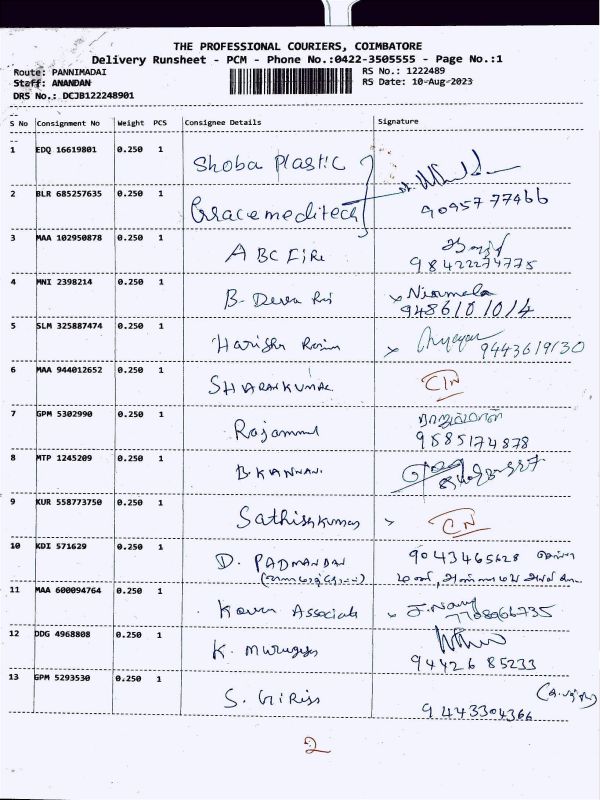 THE PROFESSIONAL COURIERS, COIMBATORE
Delivery Runsheet - PCM - Phone No.:0422-3505555 - Page No.:1
Route: PANNIMADAI
RS No.: 1222489
Staff: ANANDAN
RS Date: 10-Aug-2023
DRS No.: DCJB122248901
S No Consignment No Weight PCS Consignee Details Signature
1 EDQ 16619801 0.250 1 Shoba Plastic
2 BLR 685257635 0.250 1 Gracemeditech 90957 77466
3 MAA 102950878 0.250 1 ABC FiRe
98422274775
4 MNI 2398214 0.250 1 B. Deva Nirmala
9486101014
5 SLM 325887474 0.250 1 Harish 9443619130
6 MAA 944012652 0.250 1 SHARAN KUMAR CIN
7 GPM 5302990 0.250 1 Rajammal
9585174878
8 MTP 1245209 0.250 1 B.KANNAN
9 KUR 558773750 0.250 1 Sathishkumar CN
10 KDI 571629 0.250 1 D. PADMANABAN 9043465628
11 MAA 600094764 0.250 1 Associates
7708066735
12 DDG 4968808 0.250 1 K. Murugesan
94426 85233
13 GPM 5293530 0.250 1 S. GiRiSh
9443304366
2